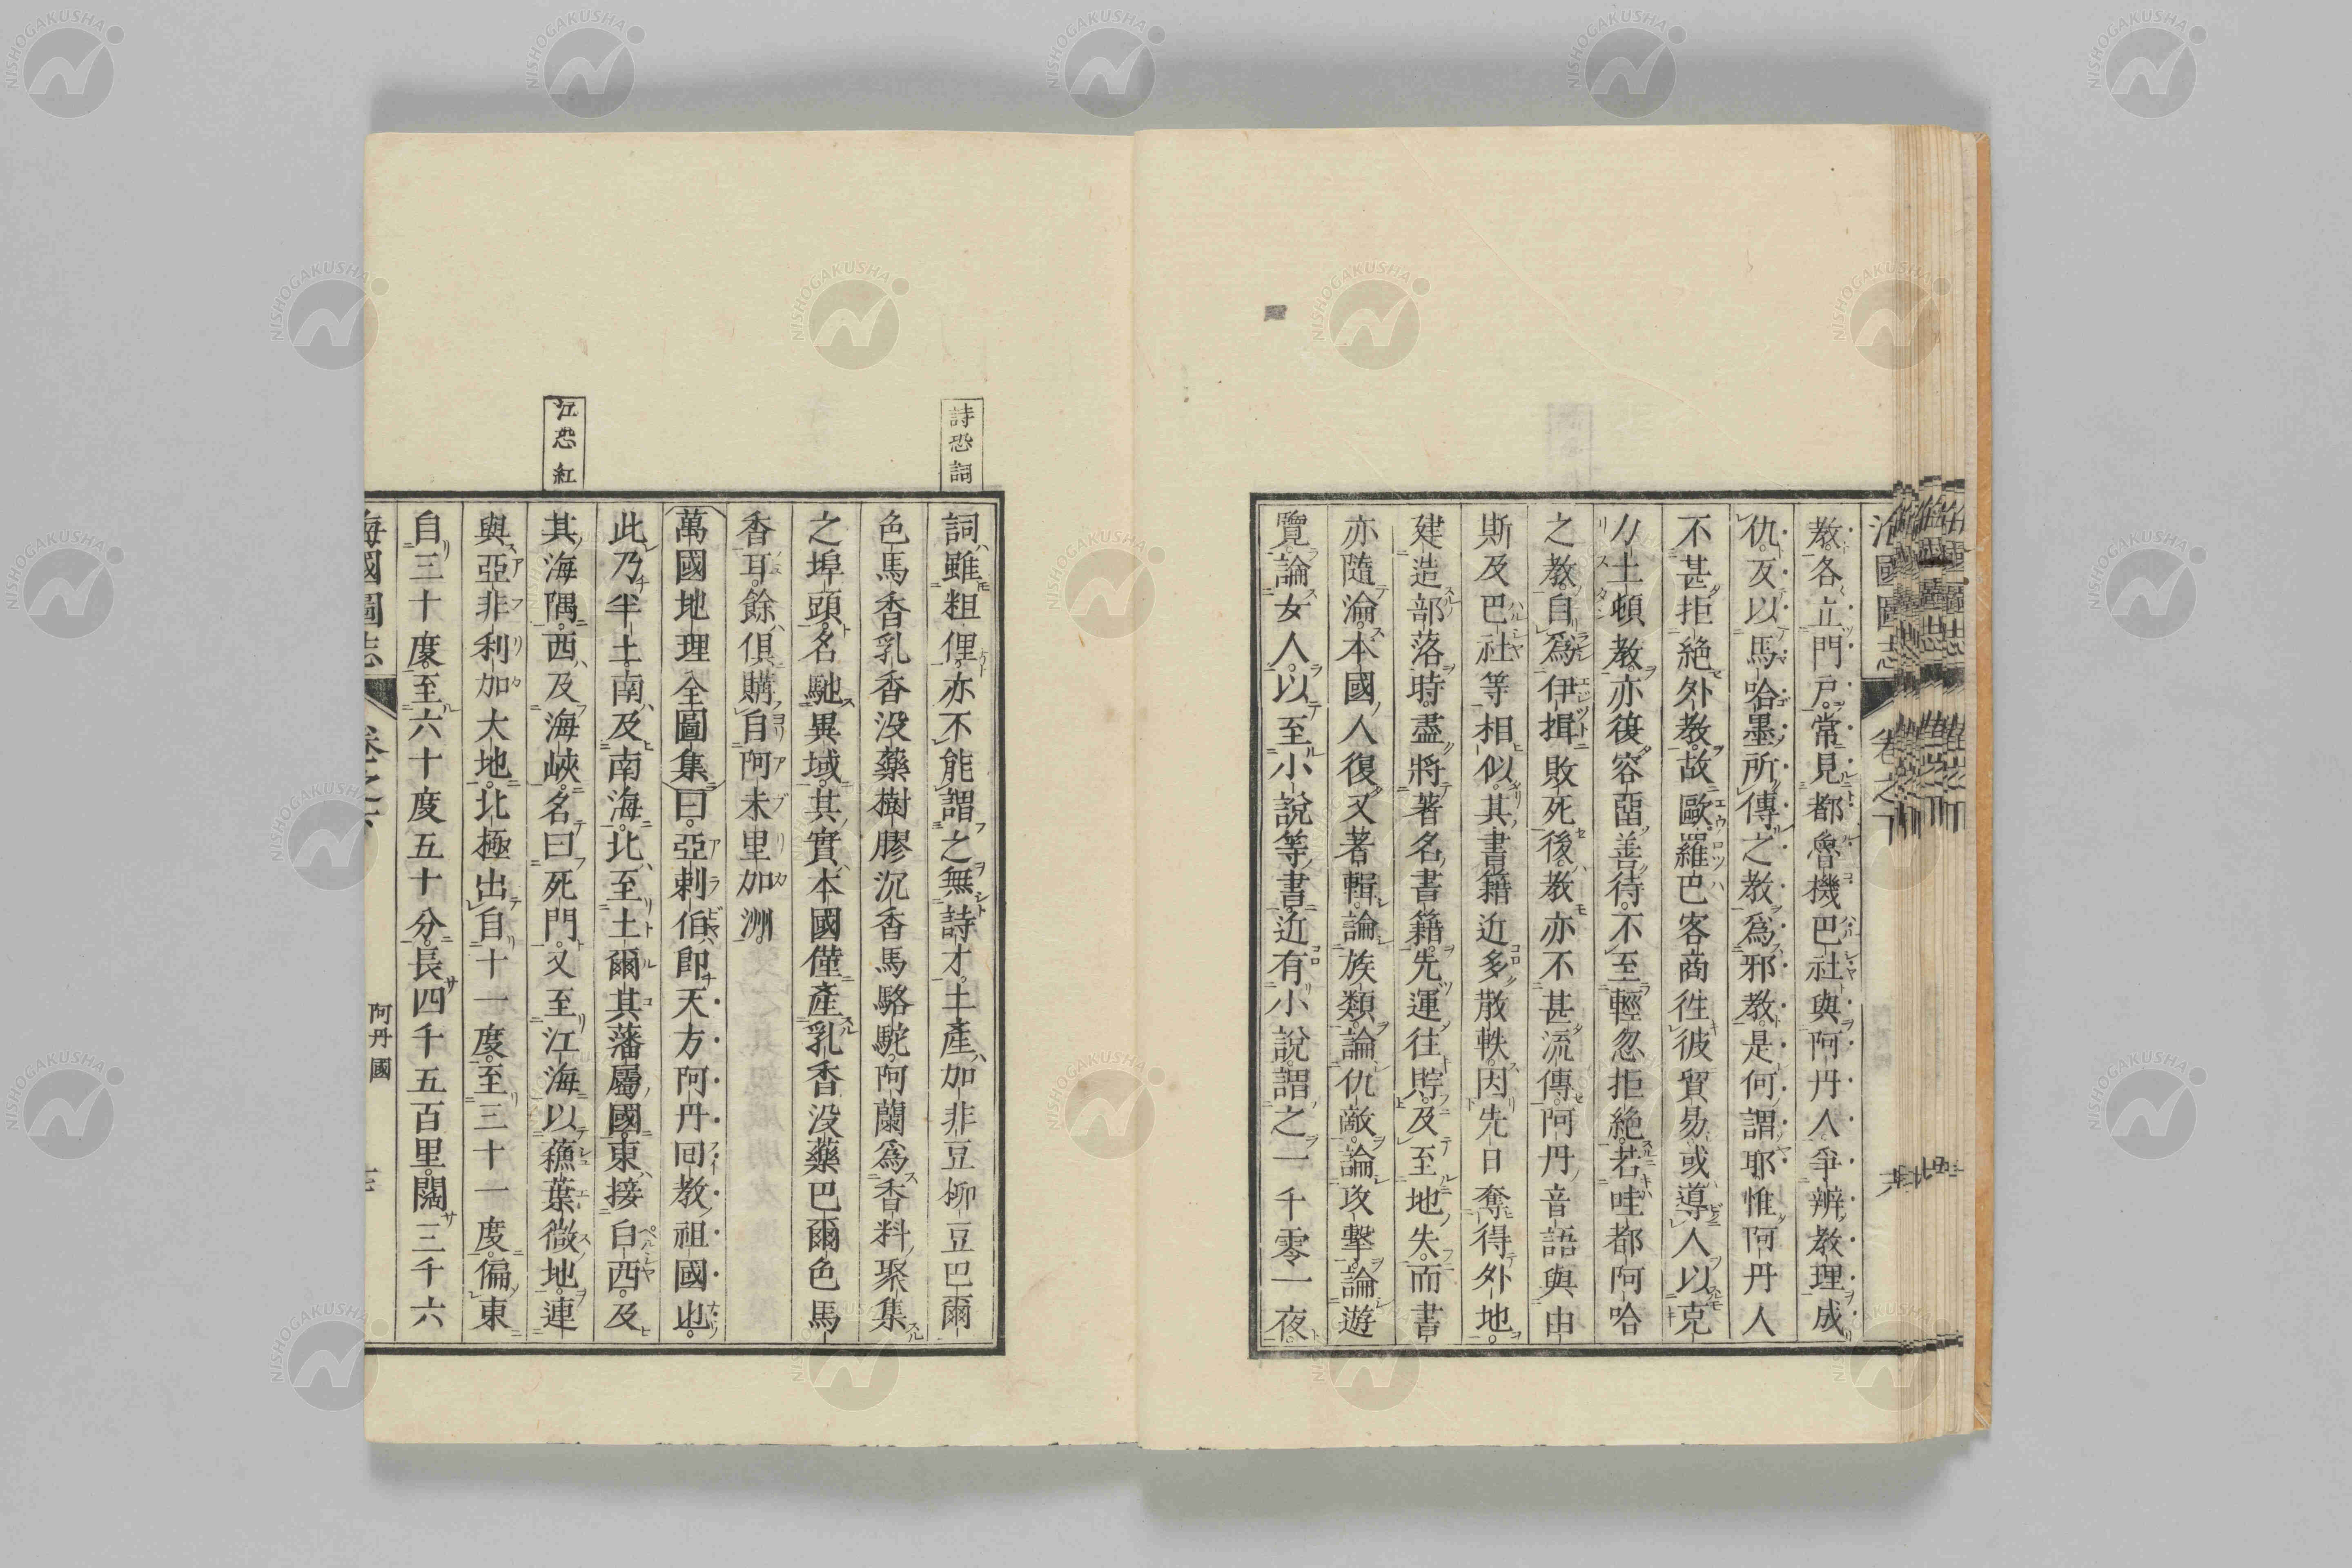 海國圖志 卷之下
教。各立門戶。常見都魯機巴社與阿丹人爭辨教理。成
仇。互以馬哈墨所傳之教。爲邪教。是何謂耶惟阿丹人
不甚拒絕外教。故歐羅巴客商徃彼貿易。或導人以克
力士頓教。亦復容畱善待。不至輕忽拒絕。若哇都阿哈
之教。自爲伊揖敗死後。教亦不甚流傳。阿丹音語與由
斯及巴社等相似。其書籍近多散軼。因先日奪得外地。
建造部落時。盡將著名書籍。先運往貯。及至地失。而書
亦隨淪。本國人復又著輯。論族類。論仇敵。論攻擊。論遊
覽。論女人。以至小說等書。近有小說。謂之一千零一夜。
詩恐詞
詞雖粗俚。亦不能謂之無詩才。土產。加非豆柳豆巴爾
色馬香乳香没藥樹膠沉香馬駱駝。阿蘭爲香料聚集
之埠頭。名馳異域。其實本國僅產乳香没藥巴爾色馬
香耳。餘俱購自阿未里加洲。
萬國地理全圖集曰。亞剌伯。卽天方阿丹回教祖國也。
此乃半土。南及南海。北至土爾其藩屬國。東接白西。及
江恐紅
其海隅。西及海峽。名曰死門。又至江海以蘓葉微地。連
與亞非利加大地。北極出自十一度。至三十一度。偏東
自三十度。至六十度五十分。長四千五百里。闊三千六
海國圖志 卷之下 阿丹國